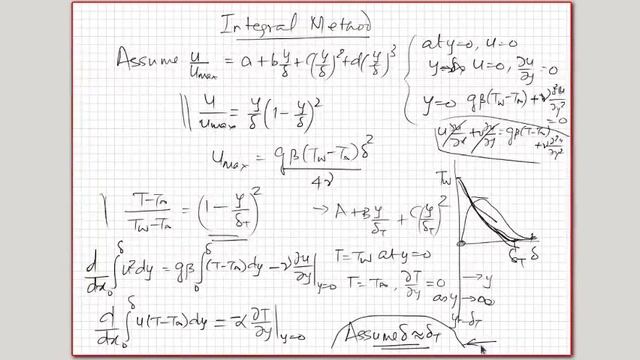 Integral Method
Assume u/u_max = a + b y/δ + c(y/δ)² + d(y/δ)³
at y=0, u=0
y=δ, u=0, ∂u/∂y=0
y=0 gβ(T_w-T_∞)+ν ∂²u/∂y² =0
u ∂u/∂x + v ∂u/∂y = gβ(T-T_∞) + ν ∂²u/∂y²
u/u_max = y/δ (1 - y/δ)²
u_max = gβ(T_w-T_∞)δ²/4ν
(T-T_∞)/(T_w-T_∞) = (1 - y/δ_T)²
→ A+B y/δ_T + C(y/δ_T)²
T_w
δ_T δ
→ y
d/dx ∫₀^δ u²dy = gβ ∫₀^δ (T-T_∞)dy - ν ∂u/∂y|_y=0
T=T_w at y=0
T=T_∞, ∂T/∂y=0
as y→∞
y=δ_T
d/dx ∫₀^δ u(T-T_∞)dy = -α ∂T/∂y|_y=0
Assume δ≈δ_T